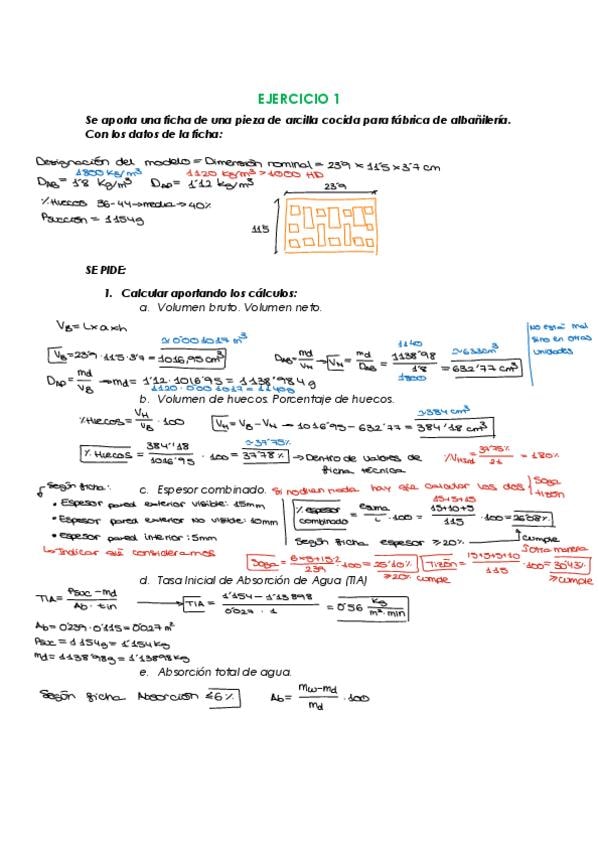 EJERCICIO 1
Se aporta una ficha de una pieza de arcilla cocida para fábrica de albañilería.
Con los datos de la ficha:
Designación del modelo = Dimensión nominal = 23'9 × 11'5 × 3'7 cm
1800 kg/m³ 1120 kg/m³ > 1000 HD
DAB = 1'8 kg/m³ DAP = 1'12 kg/m³
23'9
% Huecos 36-44 → media → 40%
Psucción = 1154g
11'5
SE PIDE:
1. Calcular aportando los cálculos:
a. Volumen bruto. Volumen neto.
VB = L×a×h
≈ 0'001017 m³
VB = 23'9 · 11'5 · 3'7 = 1016,95 cm³
DAB = md/VN → VN = md/DAB = 1138'98/1'8 = 632'77 cm³
1140
1800
≈ 633 cm³
No está mal
sino en otras
unidades
DAP = md/VB → md = 1'12 · 1016'95 = 1138'984 g
1120 · 0'001017 = 1140g
b. Volumen de huecos. Porcentaje de huecos.
% Huecos = VH/VB · 100
VH = VB - VN → 1016'95 - 632'77 = 384'18 cm³
≈ 384 cm³
% Huecos = 384'18/1016'95 · 100 = 37'78% → Dentro de valores de
ficha técnica
≈ 37'75%
= 37'75%/21 = 1'80%
c. Espesor combinado. Si no dicen nada hay que calcular los dos Soga
tizón
Según ficha:
• Espesor pared exterior visible: 15mm
• Espesor pared exterior no visible: 10mm
• Espesor pared interior: 5mm
↳ Indicar qué consideramos
% espesor combinado = esuma/L · 100 = 15+10+5/115 · 100 = 26'08%
15+15+5
Según ficha espesor ≥ 20%
Cumple
Soga = 6×5+15·2/239 · 100 = 25'10%
≥20% cumple
Otra manera
Tizón = 15+5+5+10/115 · 100 = 30'43%
≥ cumple
d. Tasa Inicial de Absorción de Agua (TIA)
TIA = Psuc - md/Ab · tin → TIA = 1'154 - 1'13898/0'027 · 1 = 0'56 kg/m²·min
Ab = 0'239 · 0'115 = 0'027 m²
Psuc = 1154g = 1'154kg
md = 1138'98g = 1'13898kg
e. Absorción total de agua.
Según ficha Absorción ≤6%
Ab = mw-md/md · 100